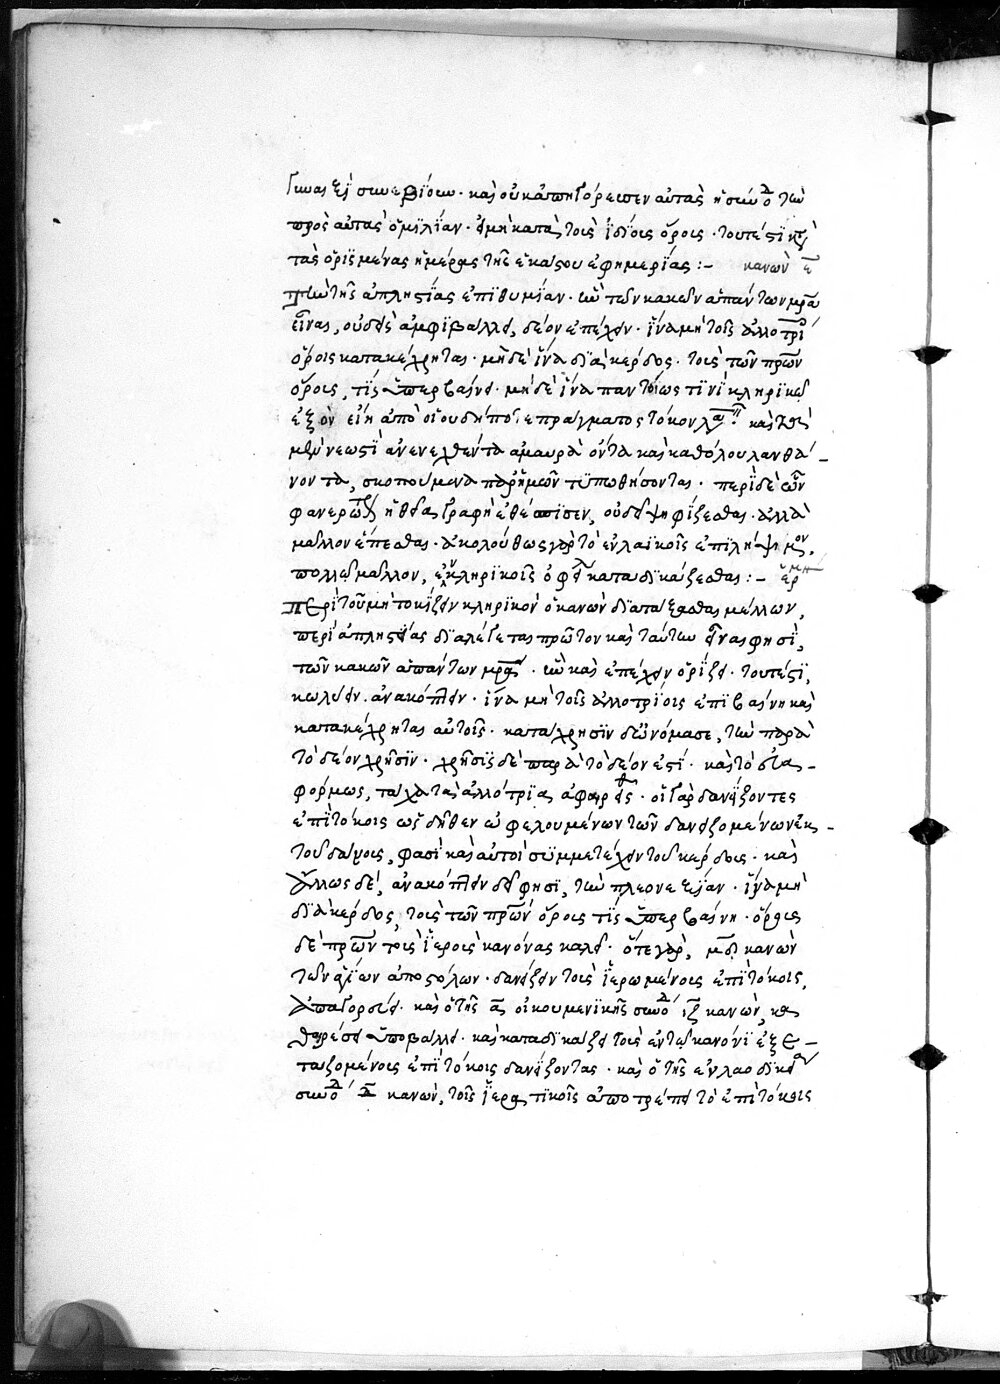 γυναιξὶ συνεβίουν· καὶ οὐκ ἀπηγόρευσεν αὐταῖς ἡ σύνοδος τὴν
πρὸς αὐτὰς ὁμιλίαν· εἰ μὴ κατὰ τοὺς ἰδίους ὅρους· τουτέστι κατὰ
τὰς ὁρισμένας ἡμέρας τῆς ἑκάστου ἐφημερίας :- κανὼν ε
Τὴν τῆς ἀπληστίας ἐπιθυμίαν· ὡς τῶν κακῶν ἁπάντων μητέρα
εἶναι, οὐδεὶς ἀμφιβάλλει, δέον ἐπέχειν· ἵνα μὴ τοῖς ἀλλοτρίοις
ὅροις κατακέχρηται· μηδὲ ἵνα διὰ κέρδος· τοὺς τῶν πατέρων
ὅρους, τὶς ὑπερβαίνει· μηδὲ ἵνα παντοίως τινὶ κληρικῶν
ἐξὸν εἴη ἀπὸ οἱουδήποτε πράγματος τόκον λαβεῖν· καὶ τὰ εἰς
μὲν νεωστὶ ἀνενεχθέντα ἀμαυρὰ ὄντα καὶ καθόλου λανθά-
νοντα, σκοπούμενα παρ' ἡμῶν τυπωθήσονται· περὶ δὲ ὧν
φανερῶς ἡ θεία γραφὴ ἐθέσπισεν, οὐ δεῖ ψηφίζεσθαι· ἀλλὰ
μᾶλλον ἕπεσθαι· ἀκολούθως γὰρ τὸ ἐν λαϊκοῖς ἐπιλήψιμον,
πολλῷ μᾶλλον, ἐν κληρικοῖς ὀφείλει καταδικάζεσθαι :- ἑρμη
Περὶ τοῦ μὴ τοκίζειν κληρικὸν ὁ κανὼν διατάξασθαι μέλλων,
περὶ ἀπληστίας διαλέγεται πρῶτον καὶ ταύτην εἶναι φησὶ,
τῶν κακῶν ἁπάντων μητέρα· ἣν καὶ ἐπέχειν ὁρίζει· τουτέστι,
κωλύειν ἀνακόπτειν· ἵνα μὴ τοῖς ἀλλοτρίοις ἐπιβαίνῃ καὶ
κατακέχρηται αὐτοῖς· κατάχρησιν δὲ ὠνόμασε, τὴν παρὰ
τὸ δέον χρῆσιν· χρῆσις δὲ παρὰ τὸ δέον ἐστί· καὶ τὸ εὐα-
φόρμως, τάχα τὰ ἀλλότρια ἀφαιρεῖσθαι· οἱ γὰρ δανείζοντες
ἐπὶ τόκοις ὡς δῆθεν ὠφελουμένων τῶν δανειζομένων ἐκ
τοῦ δανείου, φασὶ καὶ αὐτοὶ συμμετέχειν τοῦ κέρδους· καὶ
ἄλλως δὲ, ἀνακόπτειν δεῖ φησὶ, τὴν πλεονεξίαν· ἵνα μὴ
διὰ κέρδος, τοὺς τῶν πατέρων ὅρους τὶς ὑπερβαίνῃ· ὅρους
δὲ πατέρων τοὺς ἱεροὺς κανόνας καλεῖ· ὅ τε γὰρ, μδ κανὼν
τῶν ἁγίων ἀποστόλων· δανείζειν τοὺς ἱερωμένους ἐπὶ τόκοις,
ἀπαγορεύει· καὶ ὁ τῆς α οἰκουμενικῆς συνόδου ιζ κανὼν, κα-
θαιρέσει ὑποβάλλει· καὶ καταδικάζει τοὺς ἐν τῷ κανόνι ἐξε-
ταζομένους ἐπὶ τόκοις δανείζοντας· καὶ ὁ τῆς ἐν λαοδικείᾳ
συνόδου δ κανὼν, τοῖς ἱερατικοῖς ἀποτρέπει τὸ ἐπὶ τόκοις